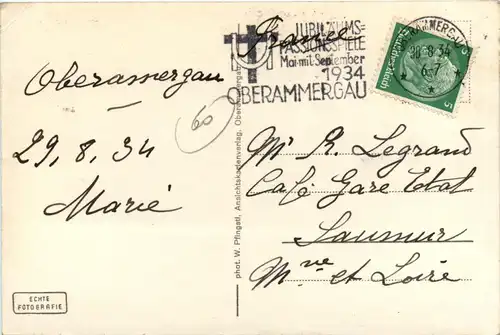 France
JUBILÄUMS-
PASSIONSSPIELE
Mai mit September
1934
OBERAMMERGAU
OBERAMMERGAU
30.8.34
6-7
Deutsches Reich
5
5
Oberamergau
29, 8, 34
Marié
60
Mr R. Legrand
Café Gare Etat
Saumur
Mne et Loire
phot. W. Pfingstl, Ansichtskartenverlag, Oberammergau
ECHTE
FOTOGRAFIE